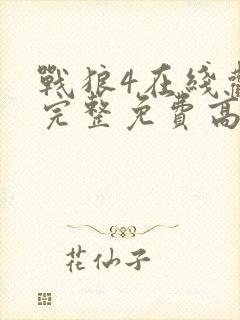 戰狼4在綫
完整免費高
花仙子